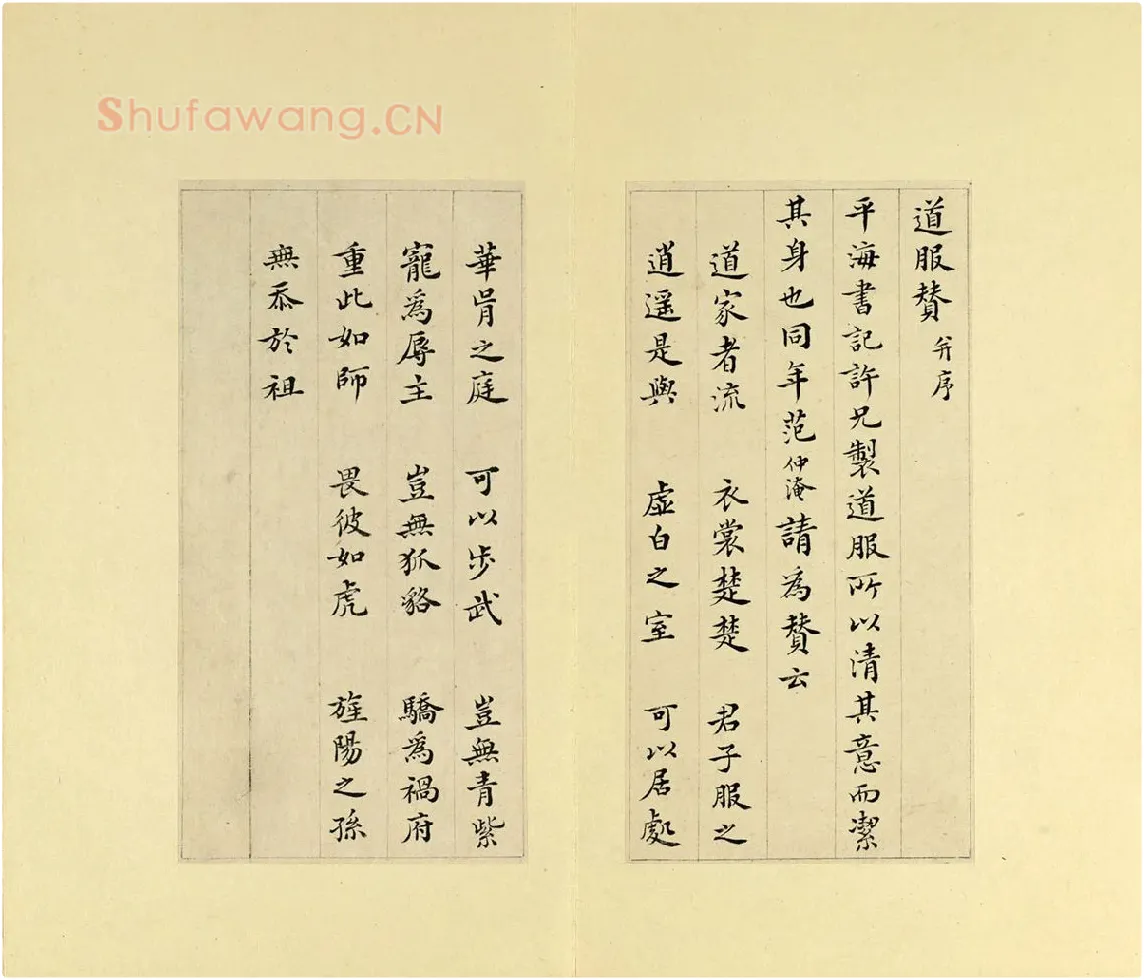 Shufawang.CN
道服賛 并序
平海書記許兄製道服所以清其意而潔
其身也同年范仲淹請為賛云
道家者流 衣裳楚楚 君子服之
逍遥是與 虚白之室 可以居處
華胥之庭 可以步武 豈無青紫
寵為辱主 豈無狐貉 驕為禍府
重此如師 畏彼如虎 旌陽之孫
無忝於祖